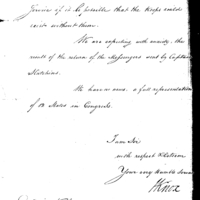 possible that the troops could
exist without them.
We are expecting with anxiety the
result of the return of the Messengers sent by Captain
Hutchins.
We have now a full representation
of 12 States in Congress.
I am Sir
with respect & Esteem
Your very humble
HKnox